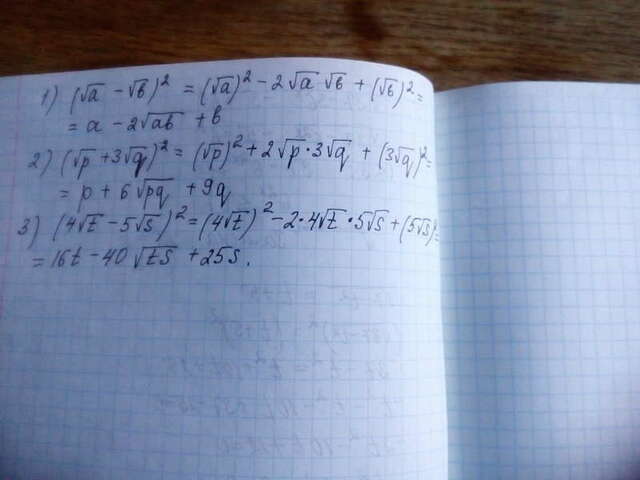 1) (√a - √b)² = (√a)² - 2√a √b + (√b)² =
= a - 2√ab + b
2) (√p + 3√q)² = (√p)² + 2√p · 3√q + (3√q)² =
= p + 6√pq + 9q
3) (4√t - 5√s)² = (4√t)² - 2·4√t · 5√s + (5√s)² =
= 16t - 40√ts + 25s.